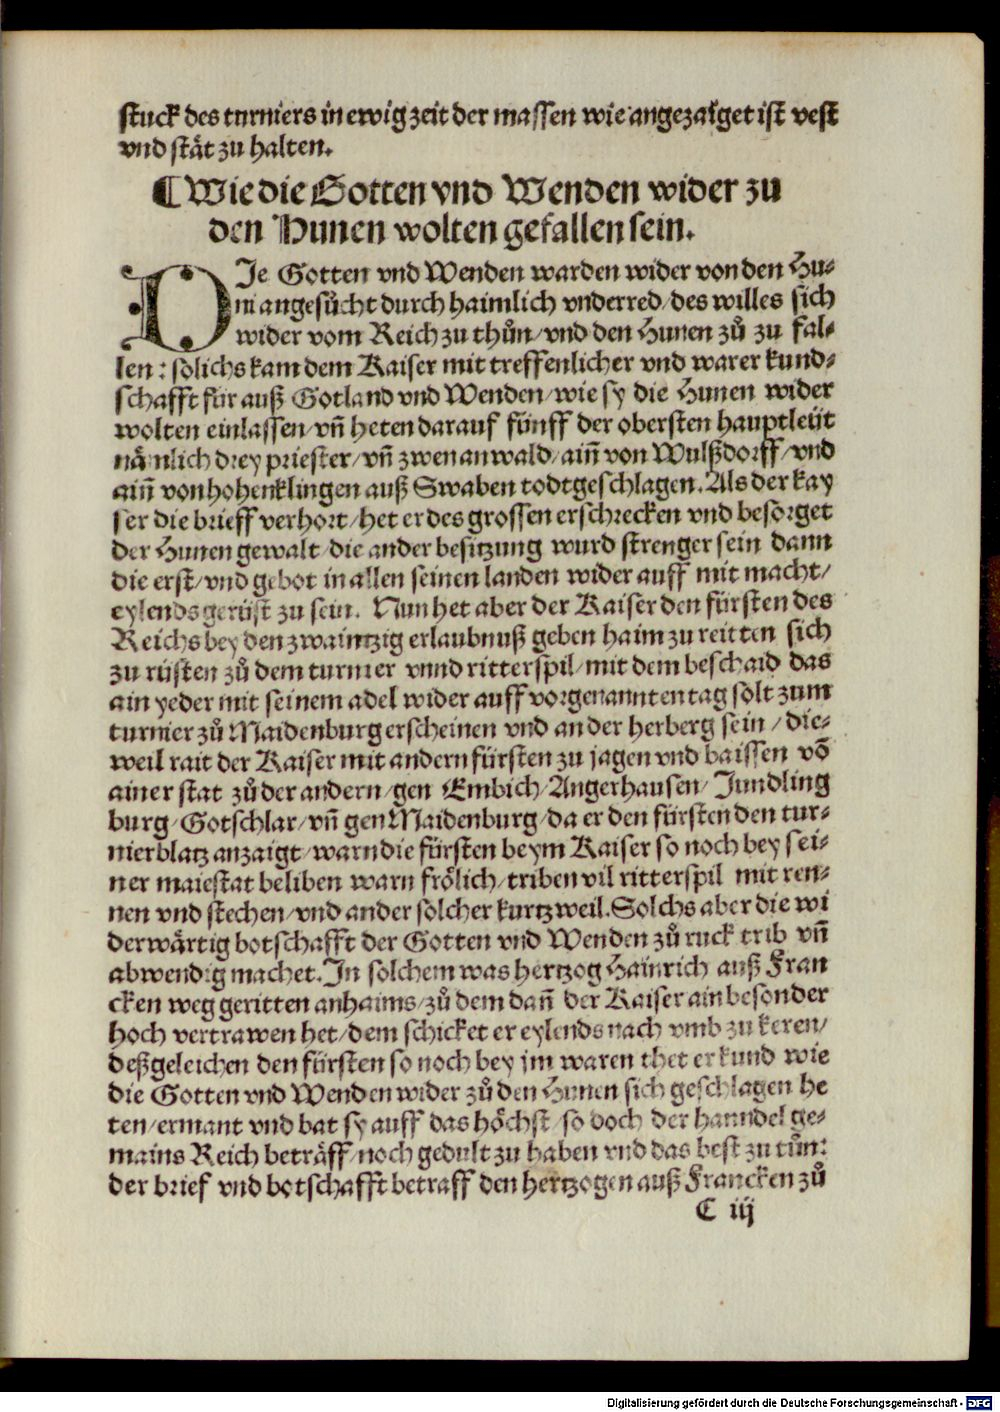 stuck des turniers in ewig zeit der massen wie angezaiget ist vest
vnd stät zu halten.
¶ Wie die Gotten vnd Wenden wider zu
den Hunen wolten gefallen sein.
DIe Gotten vnd Wenden warden wider von den Hu-
ni angesůcht durch haimlich vnderred/des willes sich
wider vom Reich zu thůn/vnd den Hunen zů zu fal-
len: solichs kam dem Kaiser mit treffenlicher vnd warer kund-
schafft für auß Gotland vnd Wenden/wie sy die Hunen wider
wolten einlassen/vñ heten darauf fünff der obersten hauptleüt
nämlich drey priester/vñ zwen anwald/aiñ von Wulßdorff/vnd
aiñ von hohenklingen auß Swaben todtgeschlagen. Als der kay
ser die brieff verhort/het er des grossen erschrecken vnd besorget
der Hunen gewalt/die ander besitzung wurd strenger sein dann
die erst/vnd gebot in allen seinen landen wider auff mit macht/
eylends gerüst zu sein. Nun het aber der Kaiser den fürsten des
Reichs bey den zwaintzig erlaubnuß geben haim zu reitten sich
zu rüsten zů dem turnier vnnd ritterspil/mit dem beschaid das
ain yeder mit seinem adel wider auff vorgenannten tag solt zum
turnier zů Maidenburg erscheinen vnd an der herberg sein/die-
weil rait der Kaiser mit andern fürsten zu jagen vnd baissen võ
ainer stat zů der andern/gen Embich/Angerhausen/Jundling
burg/Gotschlar/vñ gen Maidenburg/da er den fürsten den tur-
nierblatz anzaigt/warn die fürsten beym Kaiser so noch bey sei-
ner maiestat beliben warn frölich/triben vil ritterspil mit ren-
nen vnd stechen/vnd ander solcher kurtzweil. Solchs aber die wi
derwärtig botschafft der Gotten vnd Wenden zů ruck trib vñ
abwendig machet. In solchem was hertzog Hainrich auß Fran
cken weg geritten anhaims/zů dem dañ der Kaiser ain besonder
hoch vertrawen het/dem schicket er eylends nach vmb zu keren/
deßgeleichen den fürsten so noch bey jm waren thet er kund wie
die Gotten vnd Wenden wider zů den Hunen sich geschlagen he
ten/ermant vnd bat sy auff das höchst/so doch der hanndel ge-
mains Reich beträff/noch gedult zu haben vnd das best zu tůn:
der brief vnd botschafft betraff den hertzogen auß Francken zů
C iij
Digitalisierung gefördert durch die Deutsche Forschungsgemeinschaft - DFG